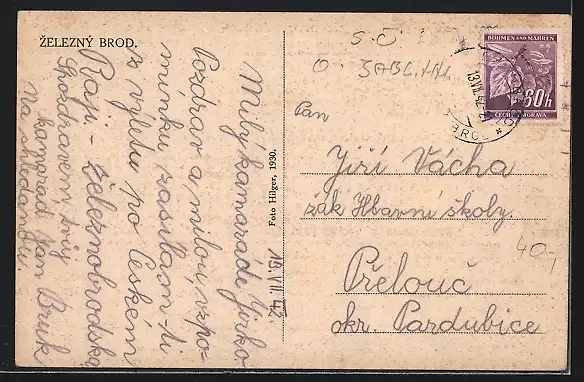 ŽELEZNÝ BROD.
Milý kamaráde Jirko
Pozdrav a milou vzpo-
mínku zasílam-ti
z výletu po Českém
Ráji - Železnobrodska
S pozdravem tvůj
kamarád Jan Bruk
Na shledanou.
15.VII.42.
Foto Hilger, 1930.
S.Č
O. JABL. N/N.
BÖHMEN UND MÄHREN
60h
ČECHY A MORAVA
13.VII.42
BROD
Pan
Jiří Vácha
žák Hlavní školy.
Přelouč
okr. Pardubice
40,-